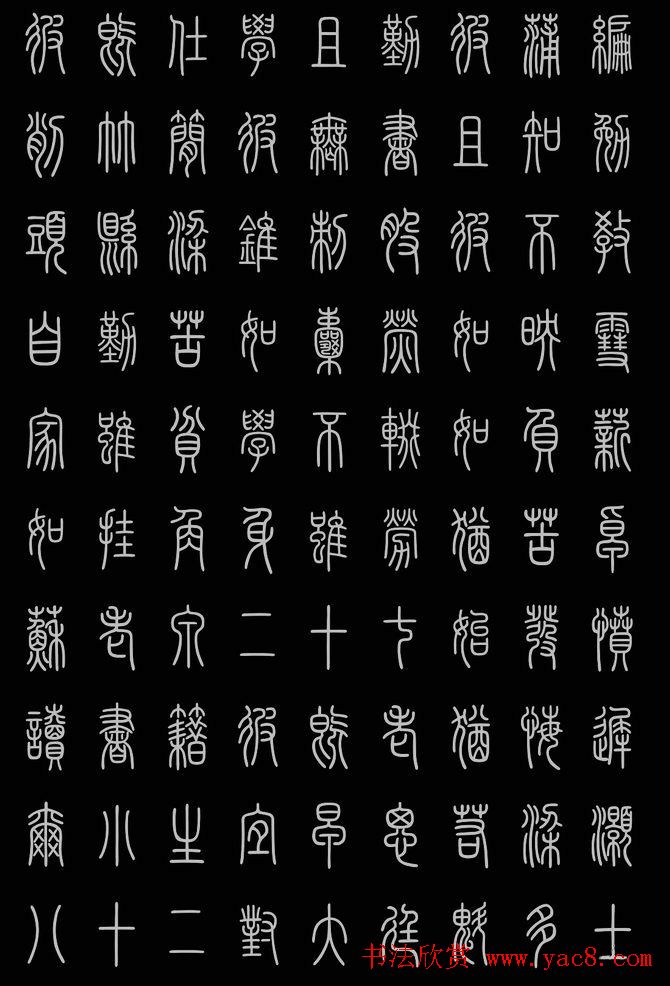 彼既仕學且勤彼蒲編
削竹簡彼無書且知勉
頭縣梁錐刺股彼不教
自勤苦如囊螢如映雪
家雖貧學不輟如負薪
如挂角身雖勞猶苦卓
蘇老泉二十七始發憤
讀書籍彼既老猶悔遲
爾小生宜早思若梁灝
八十二對大廷魁多士
书法欣赏 www.yac8.com